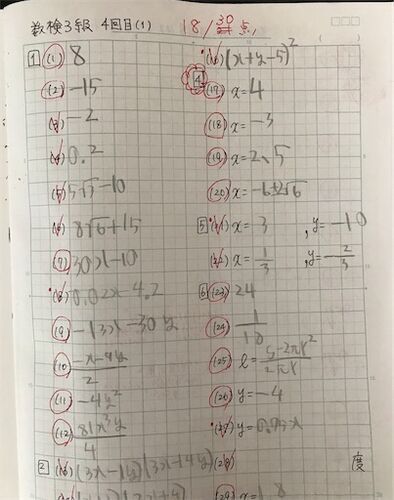 数検3級 4回目(1) 18/30点
1 (1) 8
(2) -15
(3) -2
(4) 0.2
(5) 5√3-10
(6) 8√6+15
(7) 30x-10
(8) 0.02x-4.2
(9) -13x-30y
(10) (-x-9y)/2
(11) -4y²
(12) 81x³y/4
2 (13)
(16) (x+y-5)²
4
(17) x=4
(18) x=-3
(19) x=2、5
(20) x=-6±2√6
5 (21) x=3 , y=-10
(22) x=1/3 , y=-2/3
6 (23) 24
(24)
(25) ℓ=(S-2πr²)/2πr
(26) y=-4
(27)
(28) 度
(29)